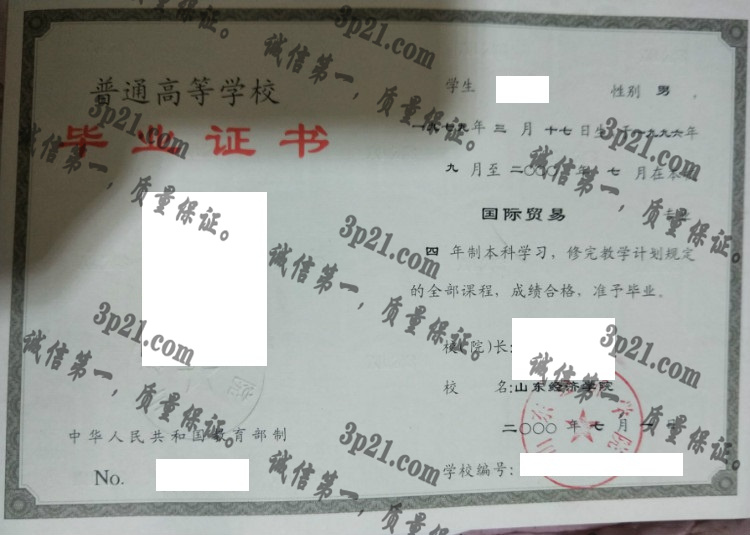 普通高等学校
毕业证书
中华人民共和国教育部制
No.
学生 性别 男 .
一九七九年三月十七日生于一九九六年
九 月至二〇〇〇年 七 月在本
国际贸易
四 年制本科学习，修完教学计划规定
的全部课程，成绩合格，准予毕业。
校(院)长:
校 名:山东经济学院
二〇〇〇年七月一
学校编号:
3p21.com
诚信第一，质量保证。
3p21.com
诚信第一，质量保证。
3p21.com
诚信第一，质量保证。
3p21.com
诚信第一，质量保证。
3p21.com
诚信第一，质量保证。
3p21.com
诚信第一，质量保证。
3p21.com
诚信第一，质量保证。
3p21.com
诚信第一，质量